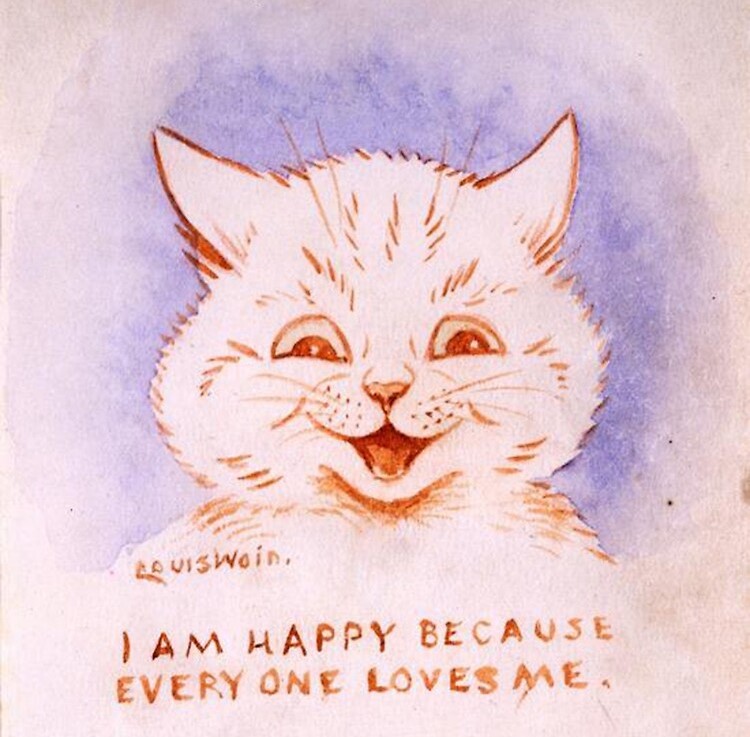 LOUISWain.
I AM HAPPY BECAUSE
EVERY ONE LOVES ME.